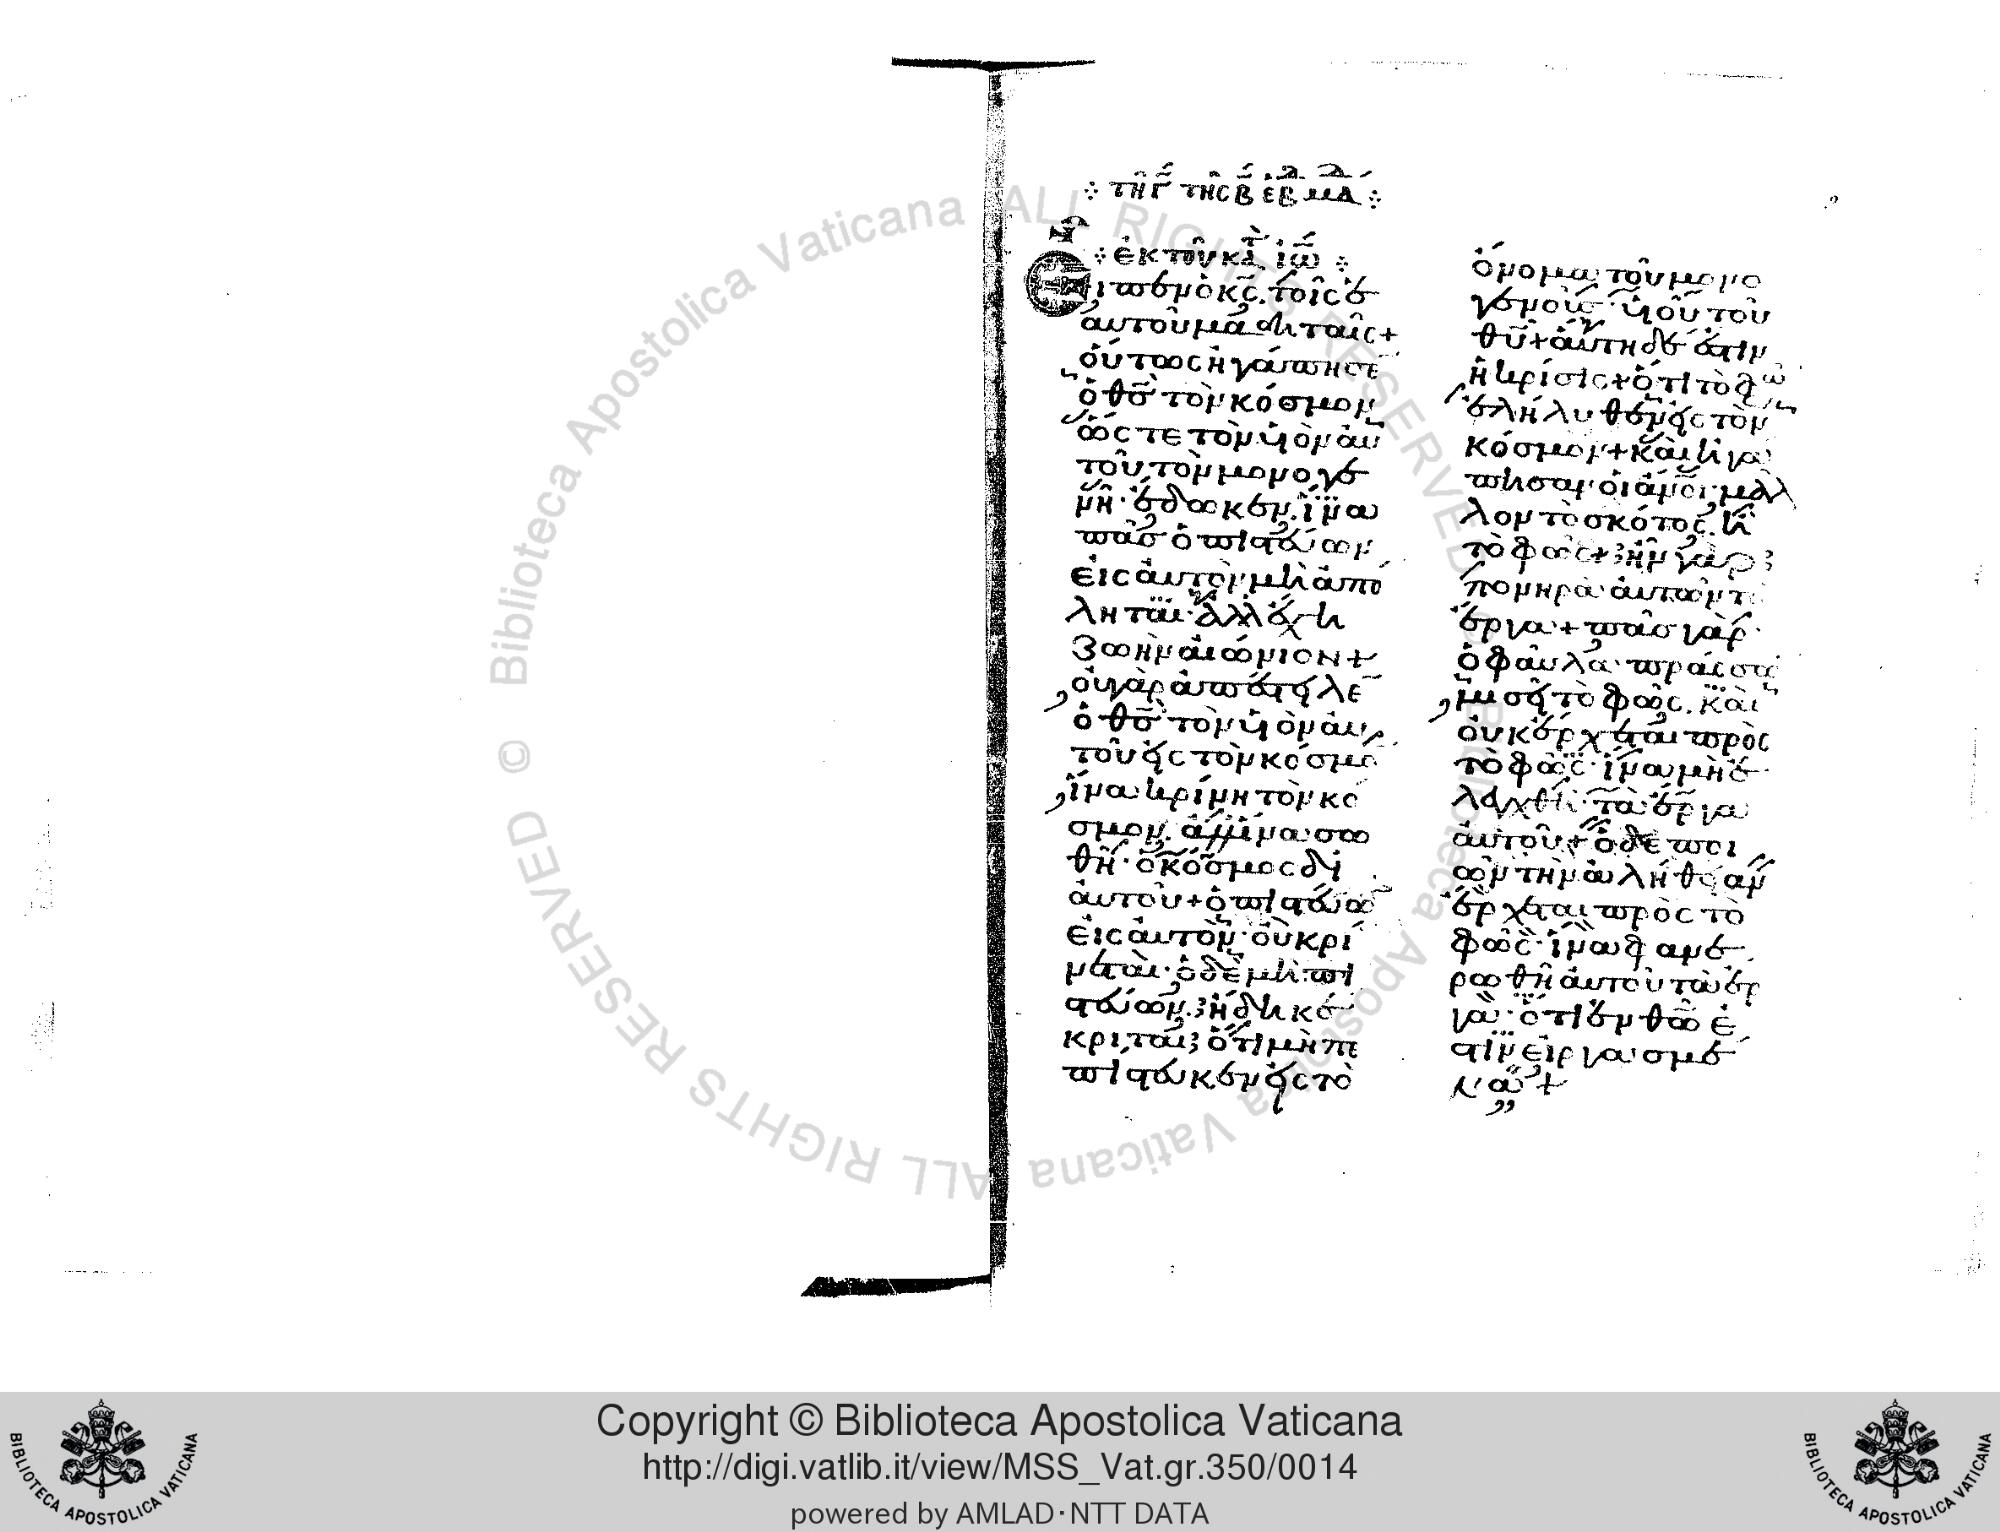 ⁘ τῆ γ̅ τῆς β̅ ἑβδμα ⁘
⁘ ἐκ τοῦ κατ ἰω ⁘
Εἶπεν ὁ κς. τοῖς ἑ
αυτοῦ μαθηταῖς +
οὕτως ἠγάπησε
ὁ θς τὸν κόσμον
ὥστε τὸν υἱὸν αυ
τοῦ τὸν μονογε
νῆ· ἔδωκεν. ἵνα
πᾶσ ὁ πιστεύων
εἰς αυτὸν μὴ ἀπό
ληται· ἀλλ ἔχη
ζωὴν αἰώνιον +
οὐ γὰρ ἀπέστειλε
ὁ θς τὸν υἱὸν αυ
τοῦ εἰς τὸν κόσμο
ἵνα κρίνη τὸν κό
σμον. ἀλλ ἵνα σω
θῆ· ὁ κόσμος δι
αυτοῦ + ὁ πιστεύω
εἰς αυτὸν· οὐ κρί
νεται· ὁ δὲ μὴ πι
στεύων. ἤδη κέ
κριται; ὅτι μὴ πε
πίστευκεν εἰς τὸ
ὄνομα τοῦ μονο
γενοῦς υἱοῦ τοῦ
θυ + αὕτη δέ ἐστιν
ἡ κρίσις + ὅτι τὸ φῶ
ἐλήλυθεν εἰς τὸν
κόσμον + καὶ ἠγά
πησαν οἱ ανοι· μᾶλ
λον τὸ σκότος. ἢ
τὸ φῶς + ἦν γὰρ
πονηρὰ αυτῶν τὰ
ἔργα + πᾶσ γὰρ
ὁ φαῦλα πράσσω
μισεῖ τὸ φῶς. καὶ
οὐκ ἔρχεται πρὸς
τὸ φῶς· ἵνα μὴ ἐ
λεγχθῆ· τὰ ἔργα
αυτοῦ + ὁ δε ποι
ῶν τὴν ἀλήθειαν
ἔρχεται πρὸς τὸ
φῶς· ἵνα φανε
ρωθῆ αυτοῦ τὰ ἔρ
γα· ὅτι ἐν θω ἐ
στὶν εἰργασμέ
να +
Copyright © Biblioteca Apostolica Vaticana
http://digi.vatlib.it/view/MSS_Vat.gr.350/0014
powered by AMLAD·NTT DATA
BIBLIOTECA APOSTOLICA VATICANA
BIBLIOTECA APOSTOLICA VATICANA
© Biblioteca Apostolica Vaticana ALL RIGHTS RESERVED © Biblioteca Apostolica Vaticana ALL RIGHTS RESERVED